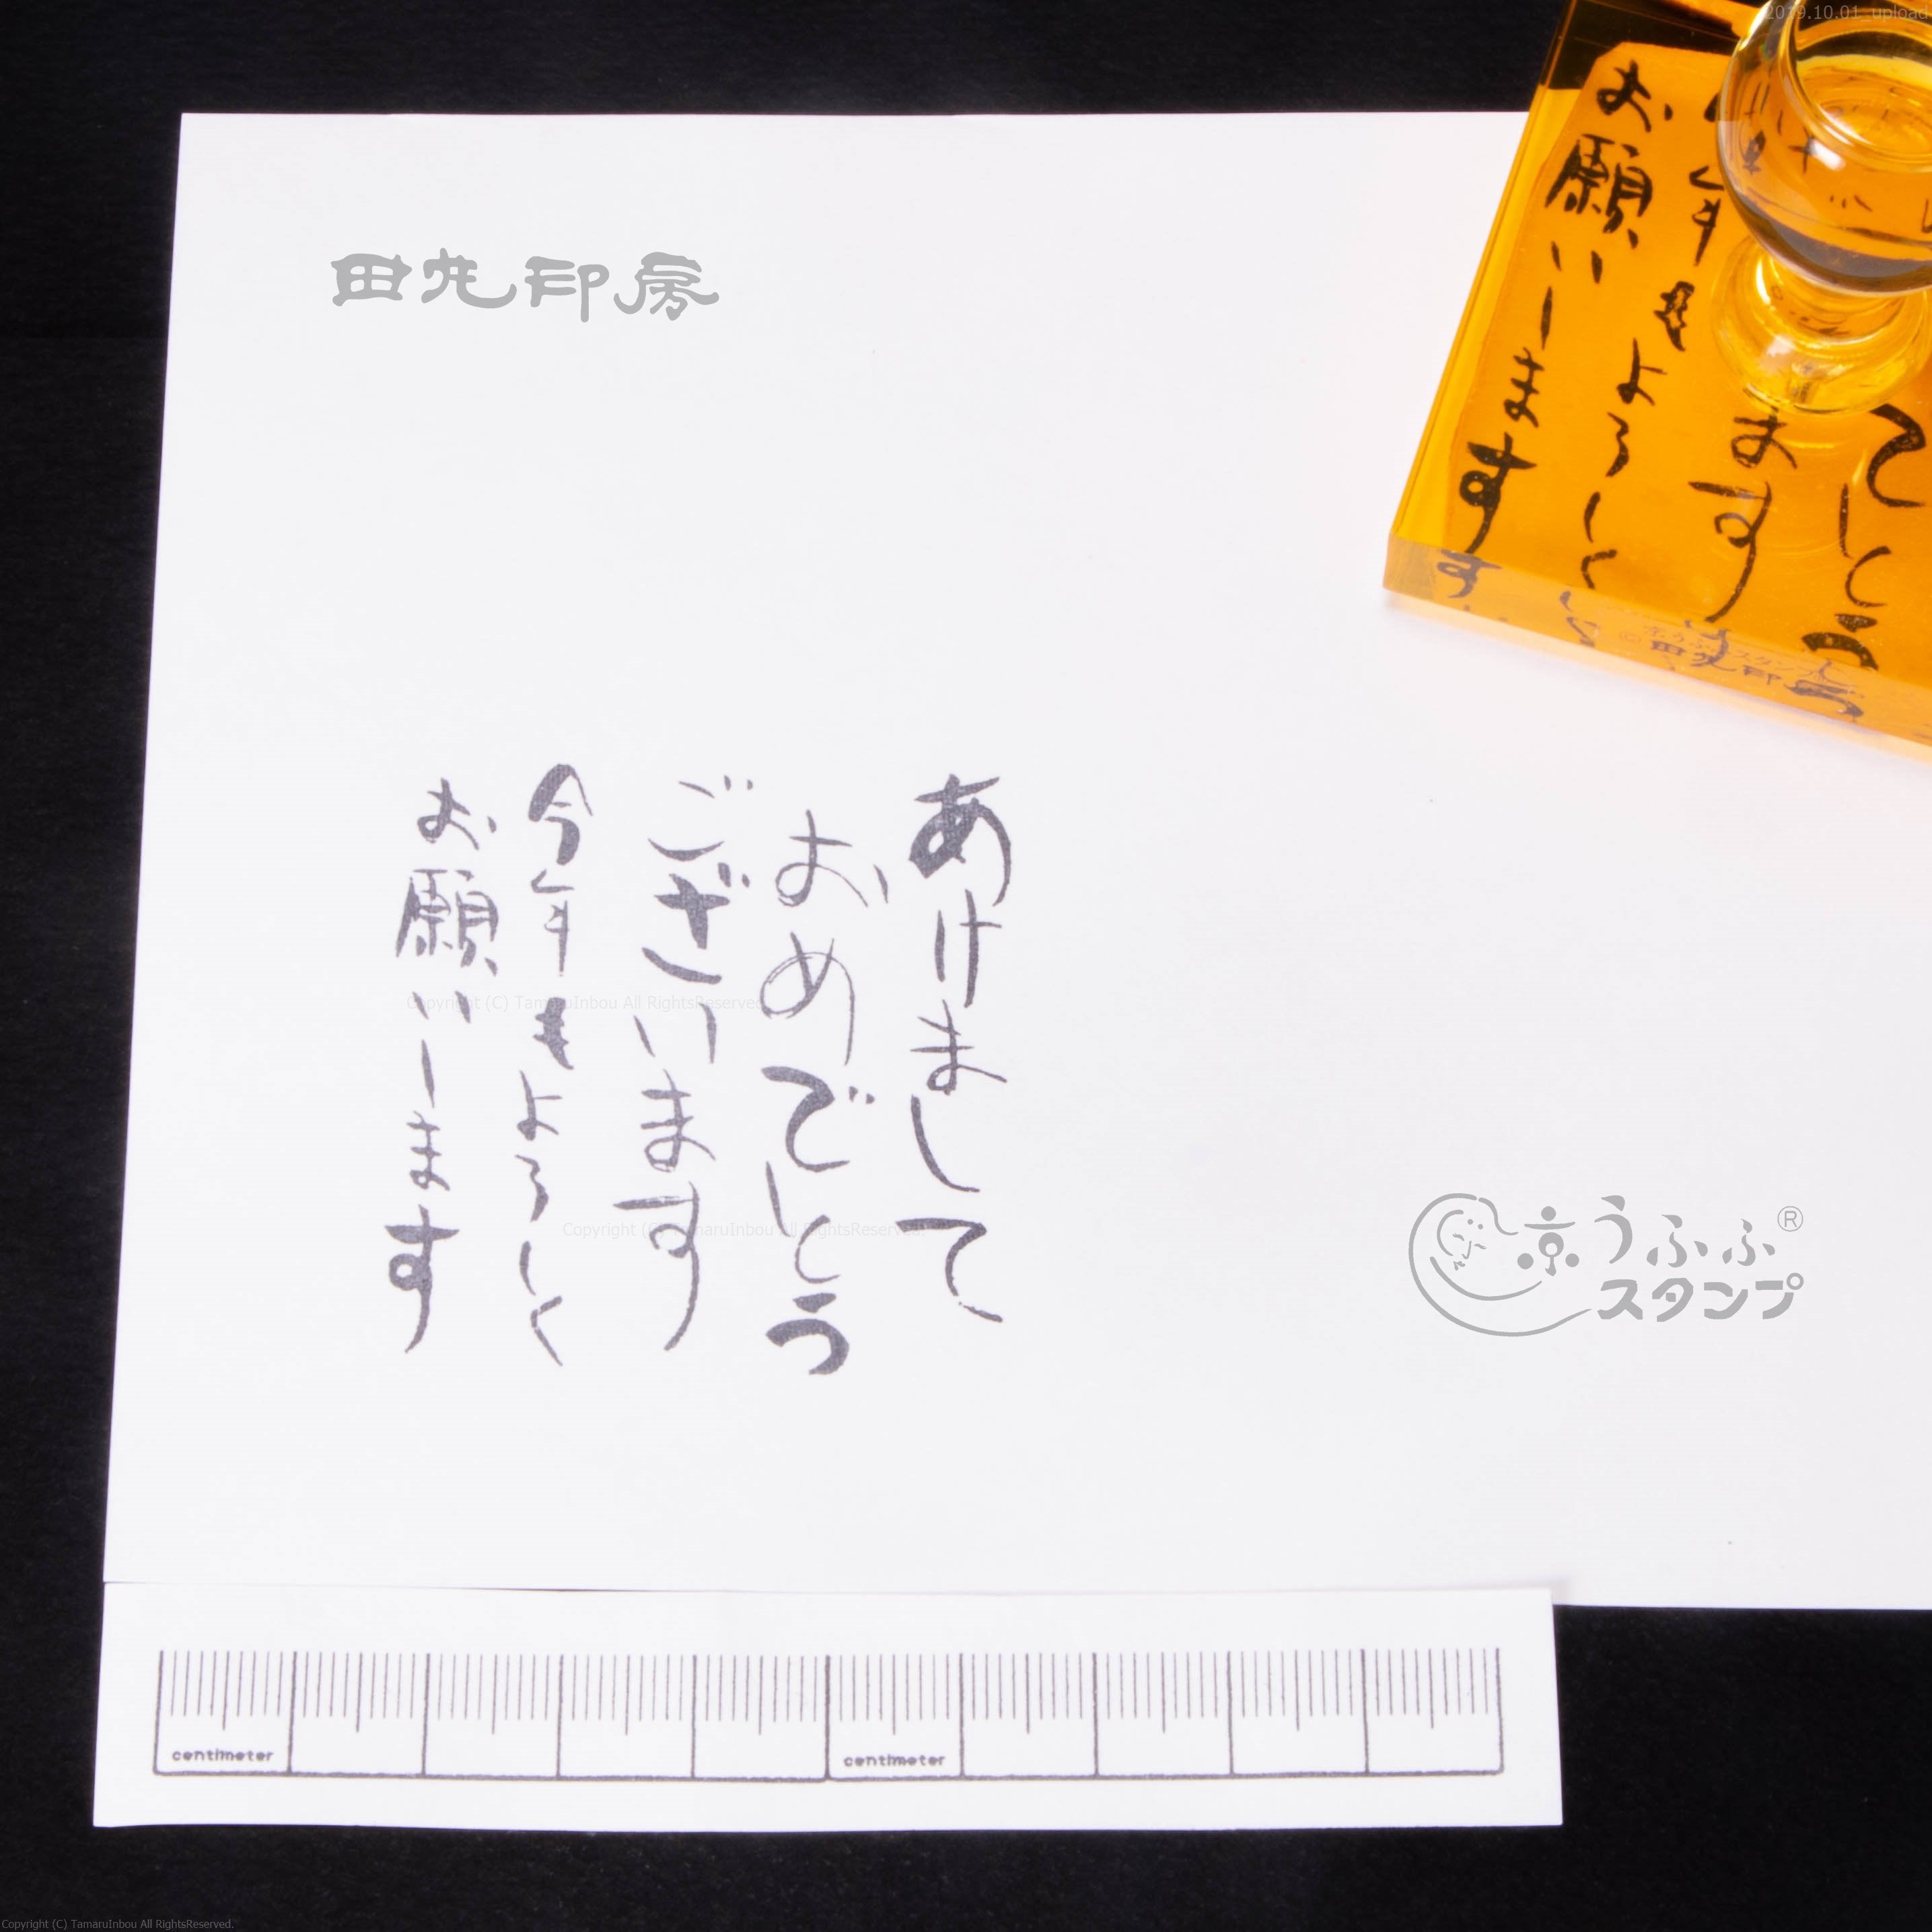 2019.10.01_upload
田丸印房
あけまして
おめでとう
ございます
今年もよろしく
お願いします
でとう
ます
年もよろしく
お願いします
京うふふスタンプ
©田丸印
Copyright (C) TamaruInbou All RightsReserved.
Copyright (C) TamaruInbou All RightsReserved.
京うふふ®
スタンプ
centimeter
centimeter
Copyright (C) TamaruInbou All RightsReserved.